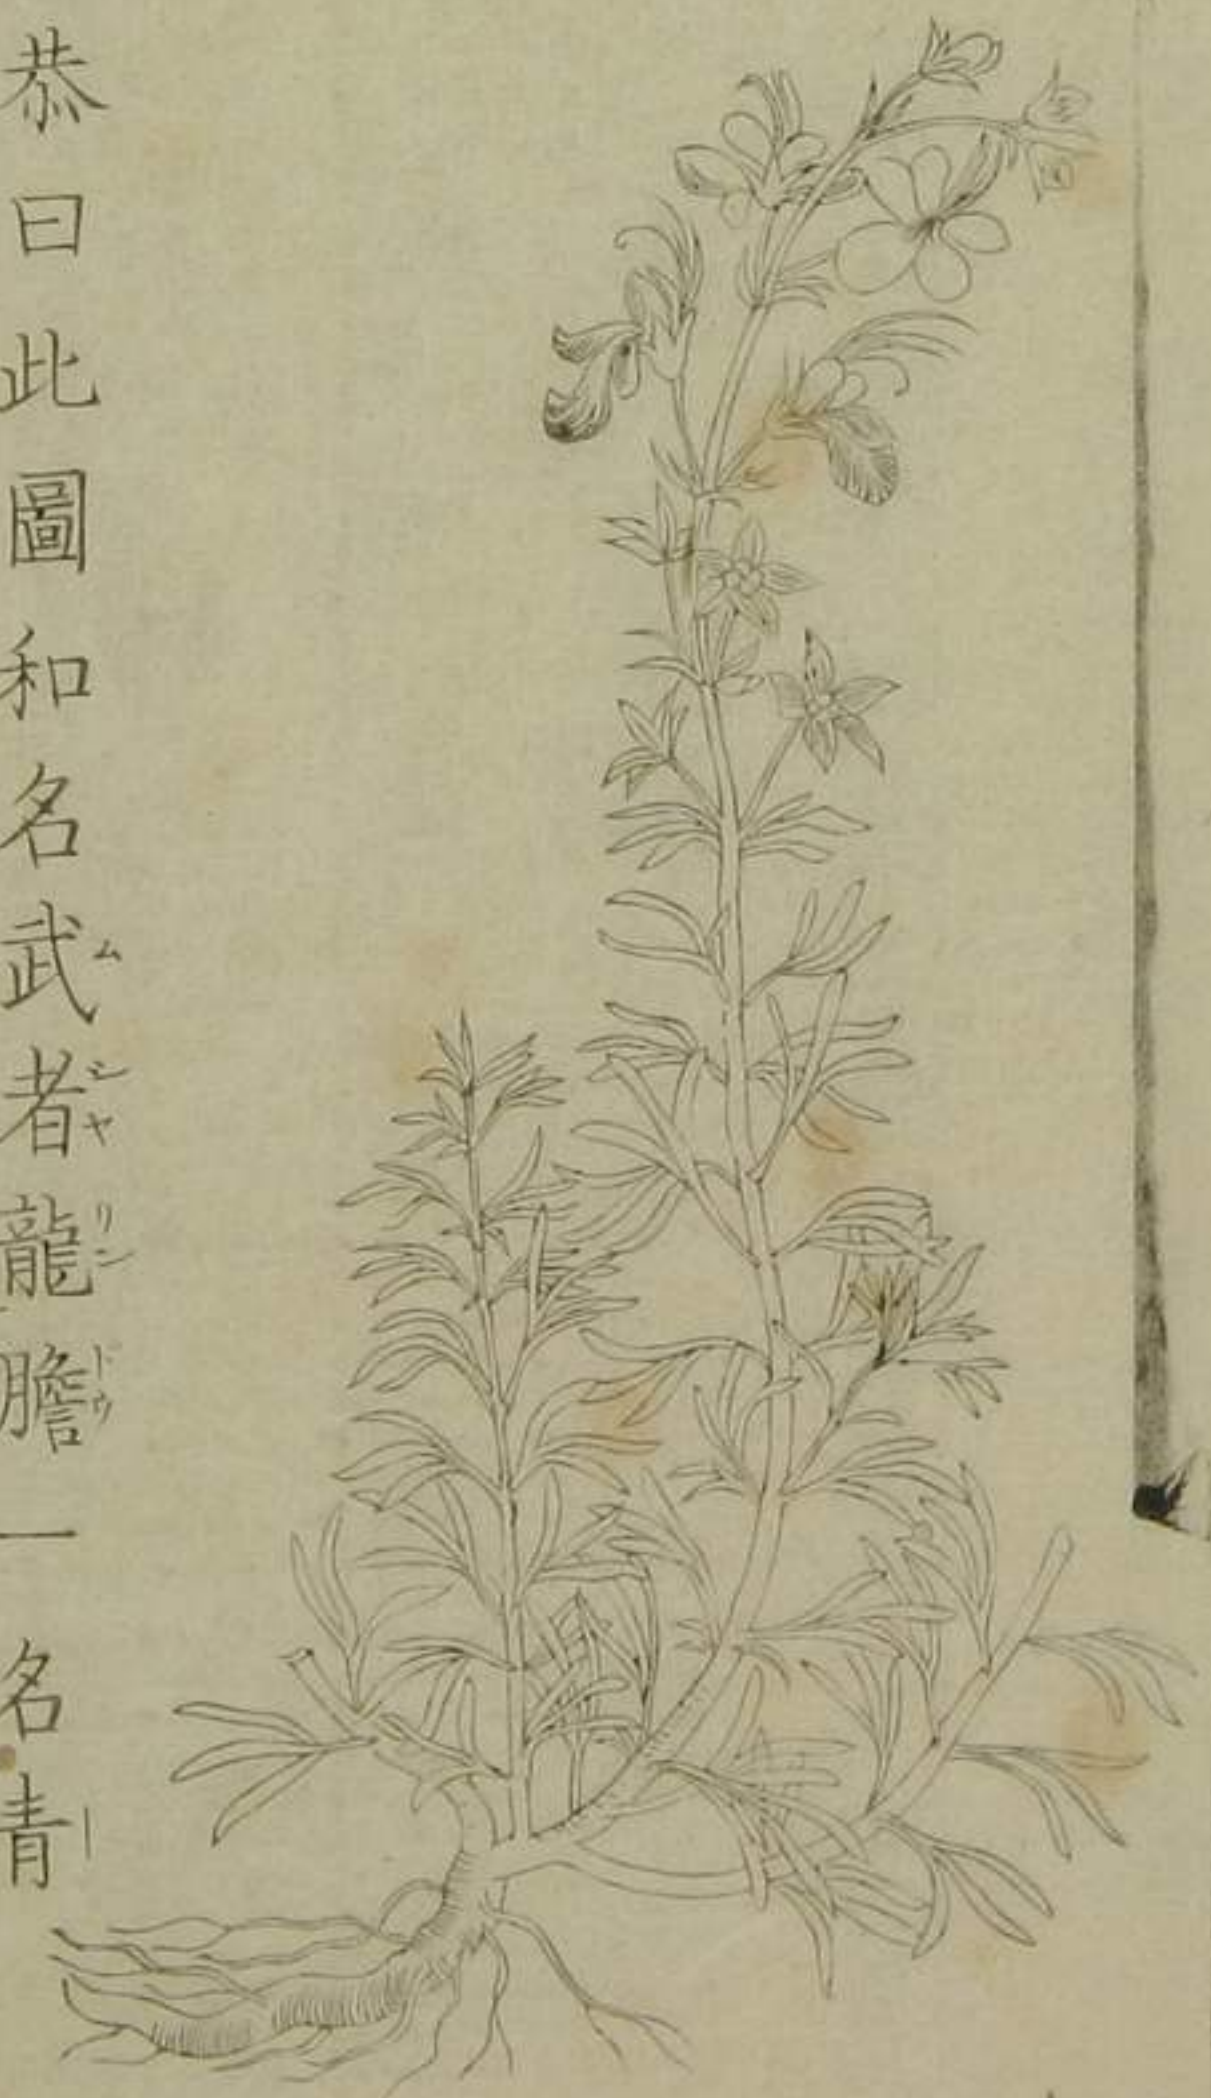 恭曰此圖和名武者龍膽一名青
ムシヤリンドウ